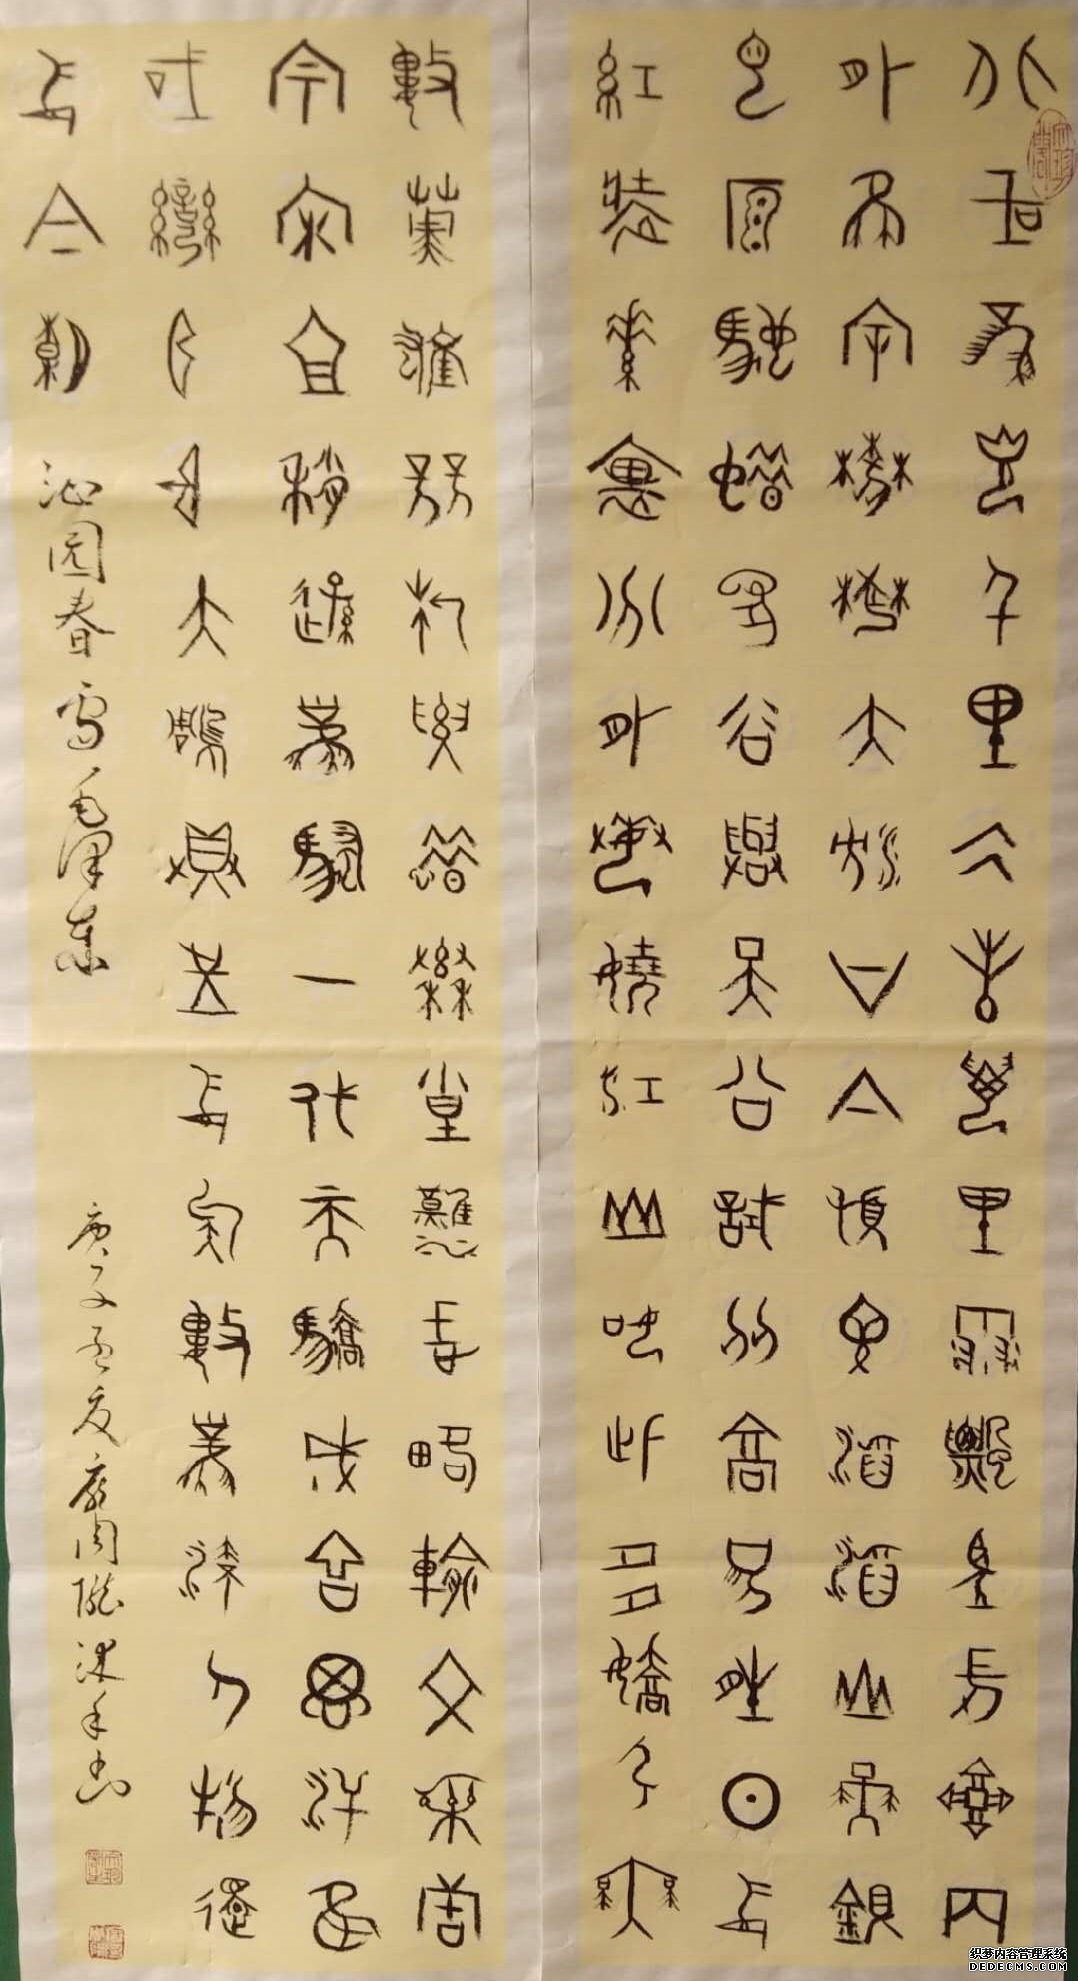 北国風光千里冰封萬里雪飄望長城内
外隹余莽莽大河上下頓失滔滔山舞銀
它原馳蠟象谷與天公試比高須晴日看
紅裝素裹分外妖嬈江山如此多嬌引無
數英雄競折腰惜秦皇漢武略輸文采唐
宗宋且稍遜風騷一代天驕成吉思汗只
識彎弓射大雕俱往矣數風流人物還
看今朝 沁园春雪毛泽东 庚子孟夏
织梦内容管理系统
DEDECMS.COM